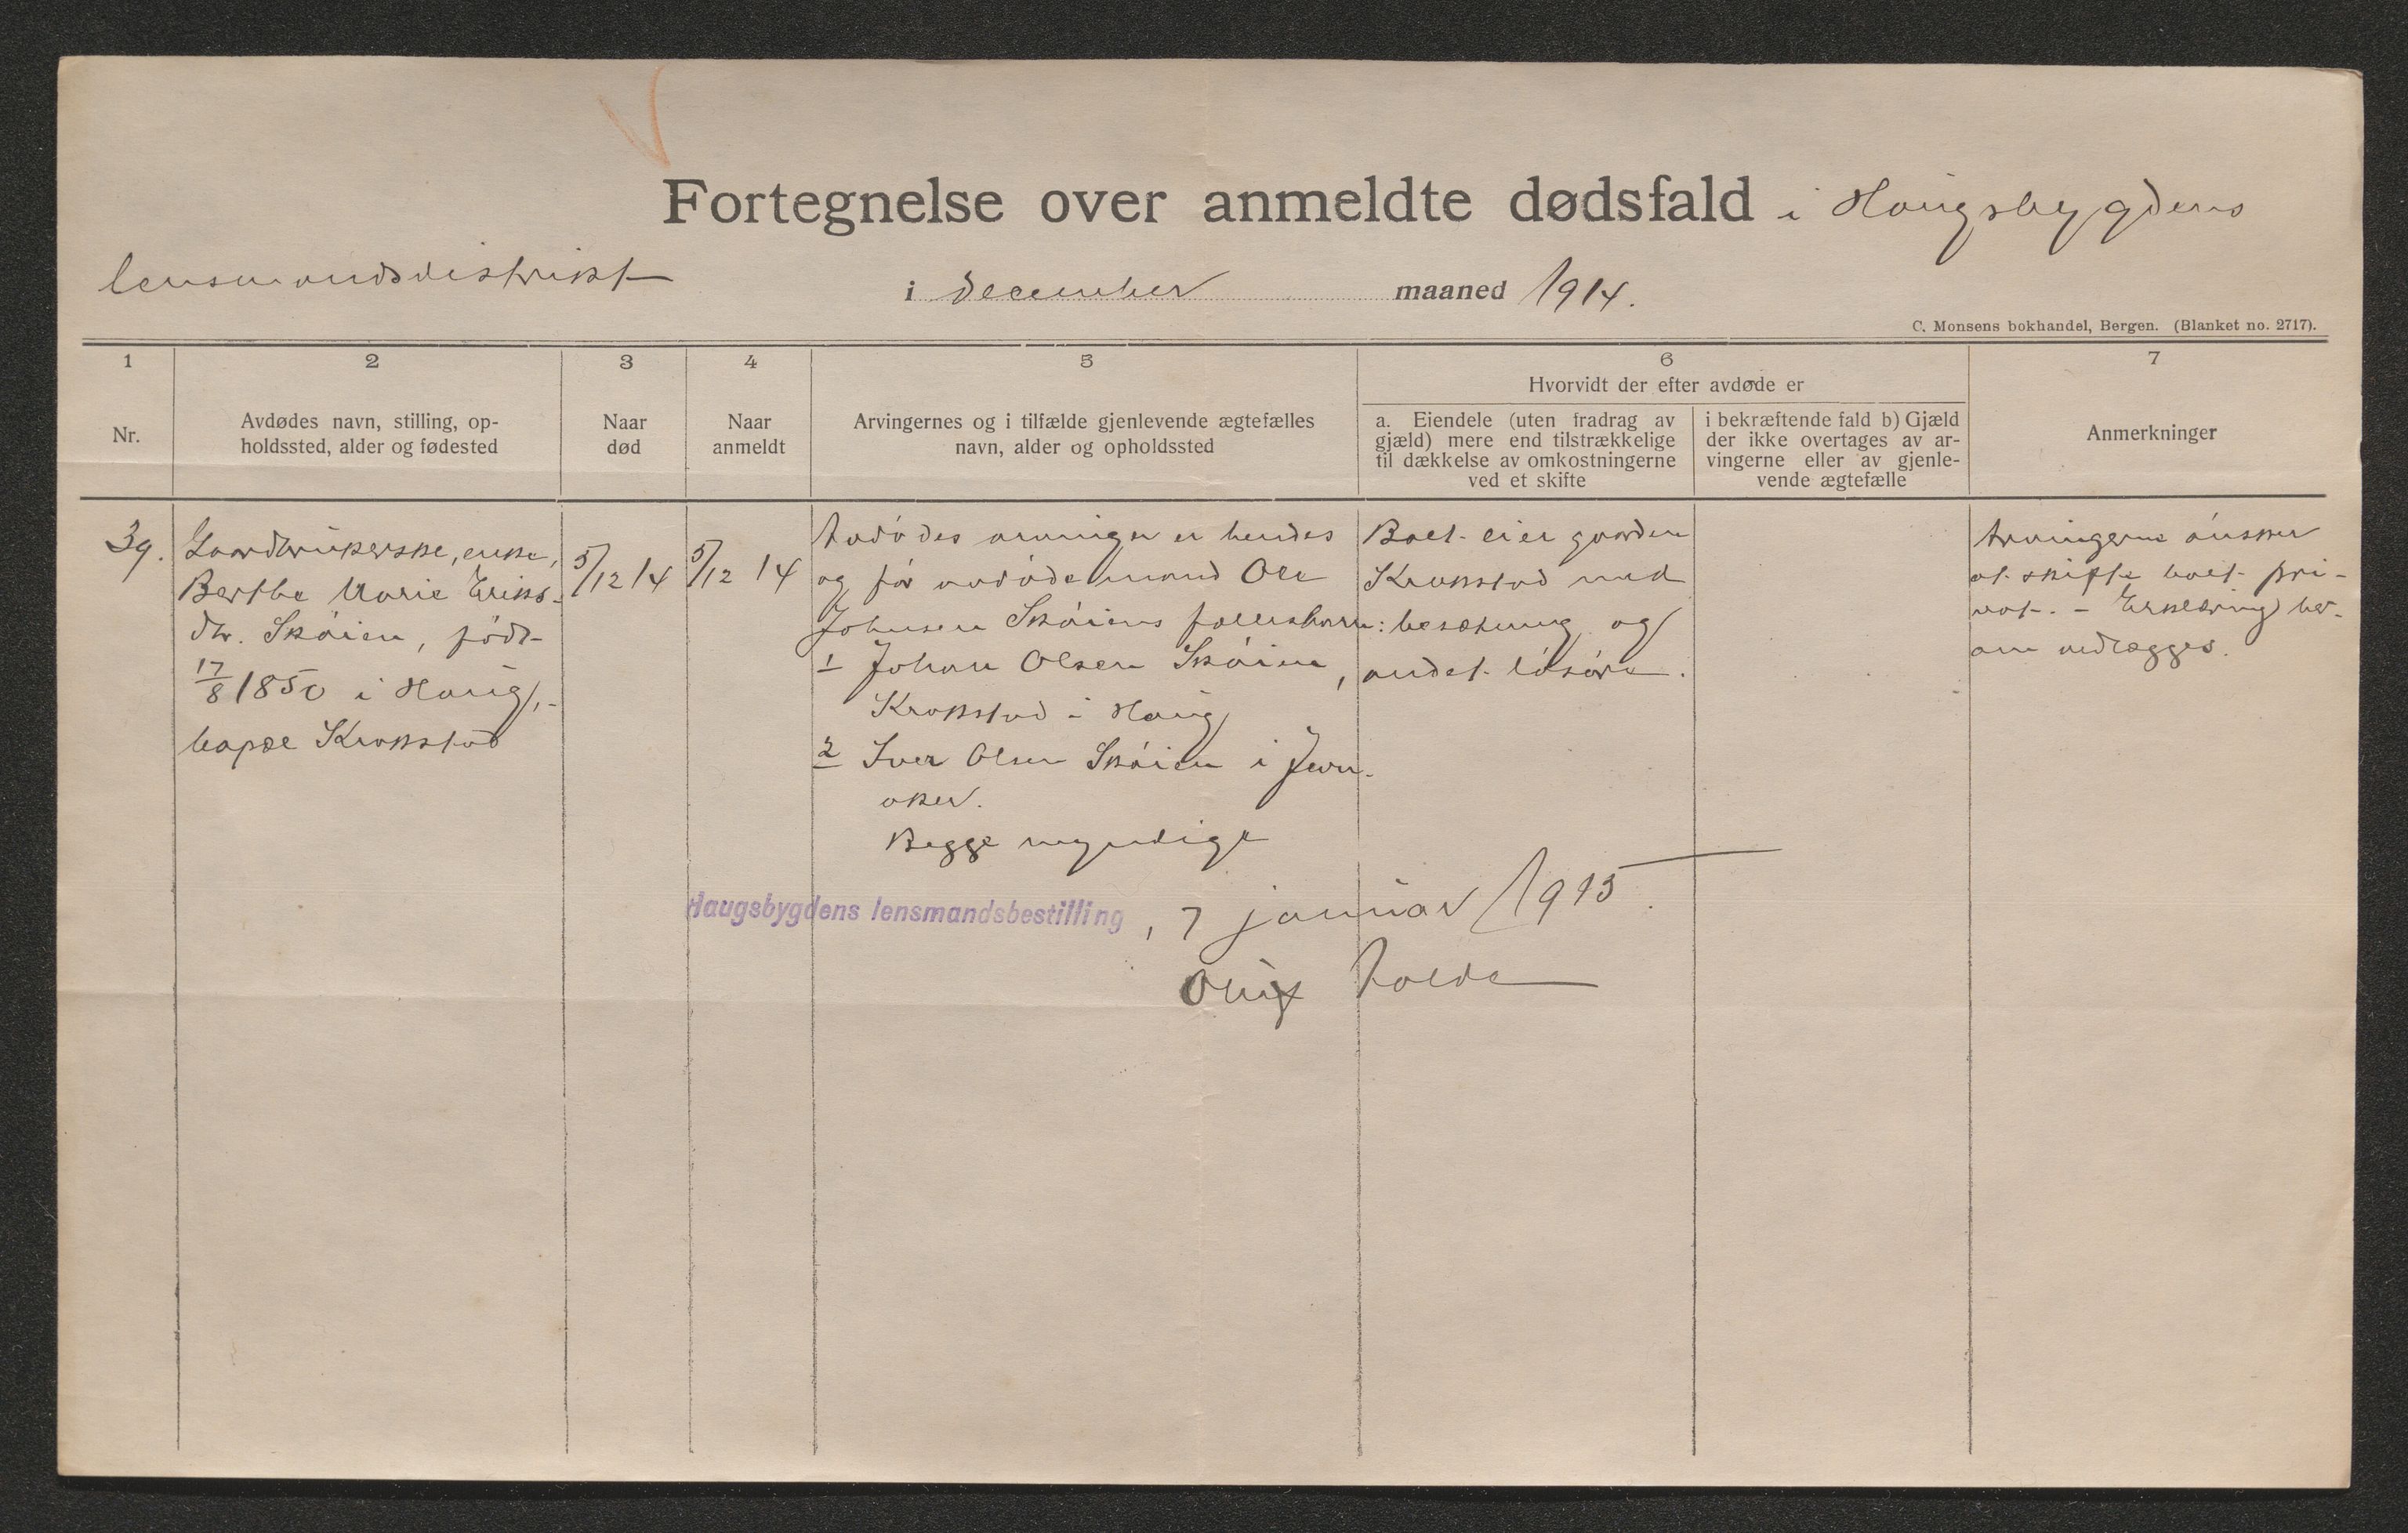 Fortegnelse over anmeldte dødsfald i Haugsbygdens
lensmandsdistrikt i december maaned 1914.
C. Monsens bokhandel, Bergen. (Blanket no. 2717).
1 2 3 4 5 6 7
Hvorvidt der efter avdøde er
Nr.
Avdødes navn, stilling, op-
holdssted, alder og fødested
Naar
død
Naar
anmeldt
Arvingernes og i tilfælde gjenlevende ægtefælles
navn, alder og opholdssted
a. Eiendele (uten fradrag av
gjæld) mere end tilstrækkelige
til dækkelse av omkostningerne
ved et skifte
i bekræftende fald b) Gjæld
der ikke overtages av ar-
vingerne eller av gjenle-
vende ægtefælle
Anmerkninger
39.
Gaardbrukerske, enke,
Berthe Marie Eriks-
dtr. Skøien, født
17/8 1850 i Haug,-
bopæl Krokstad
5/12 14
5/12 14
Avdødes arvinger er hendes
og før avdøde mand Ole
Johnsen Skøiens fællesbarn:
1 Johan Olsen Skøien,
Krokstad i Haug
2 Iver Olsen Skøien i Jevn-
aker.
Begge myndige
Boet eier gaarden
Krokstad med
besætning og
andet løsøre.
Arvingerne ønsker
at skifte boet pri-
vat. - Erklæring her-
om vedlægges.
Haugsbygdens lensmandsbestilling, 7 januar 1915.